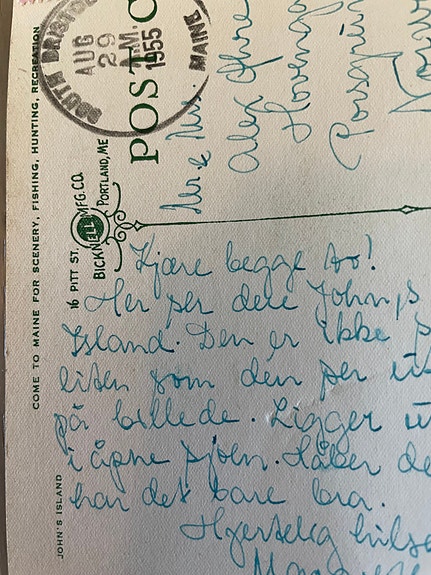 SOUTH BRISTOL
AUG
29
A.M.
1955
MAINE
POST C
Mr. & Mrs.
Alex
COME TO MAINE FOR SCENERY, FISHING, HUNTING, RECREATION
16 PITT ST.
BICKNELL MFG. CO
PORTLAND, ME
JOHN'S ISLAND
Kjære begge to!
Her ser dere John's
Island. Den er ikke så
liten som den ser ut
på billede. Ligger ut
i åpne sjøen. Håber de
har det bare bra.
Hjertelig hilse